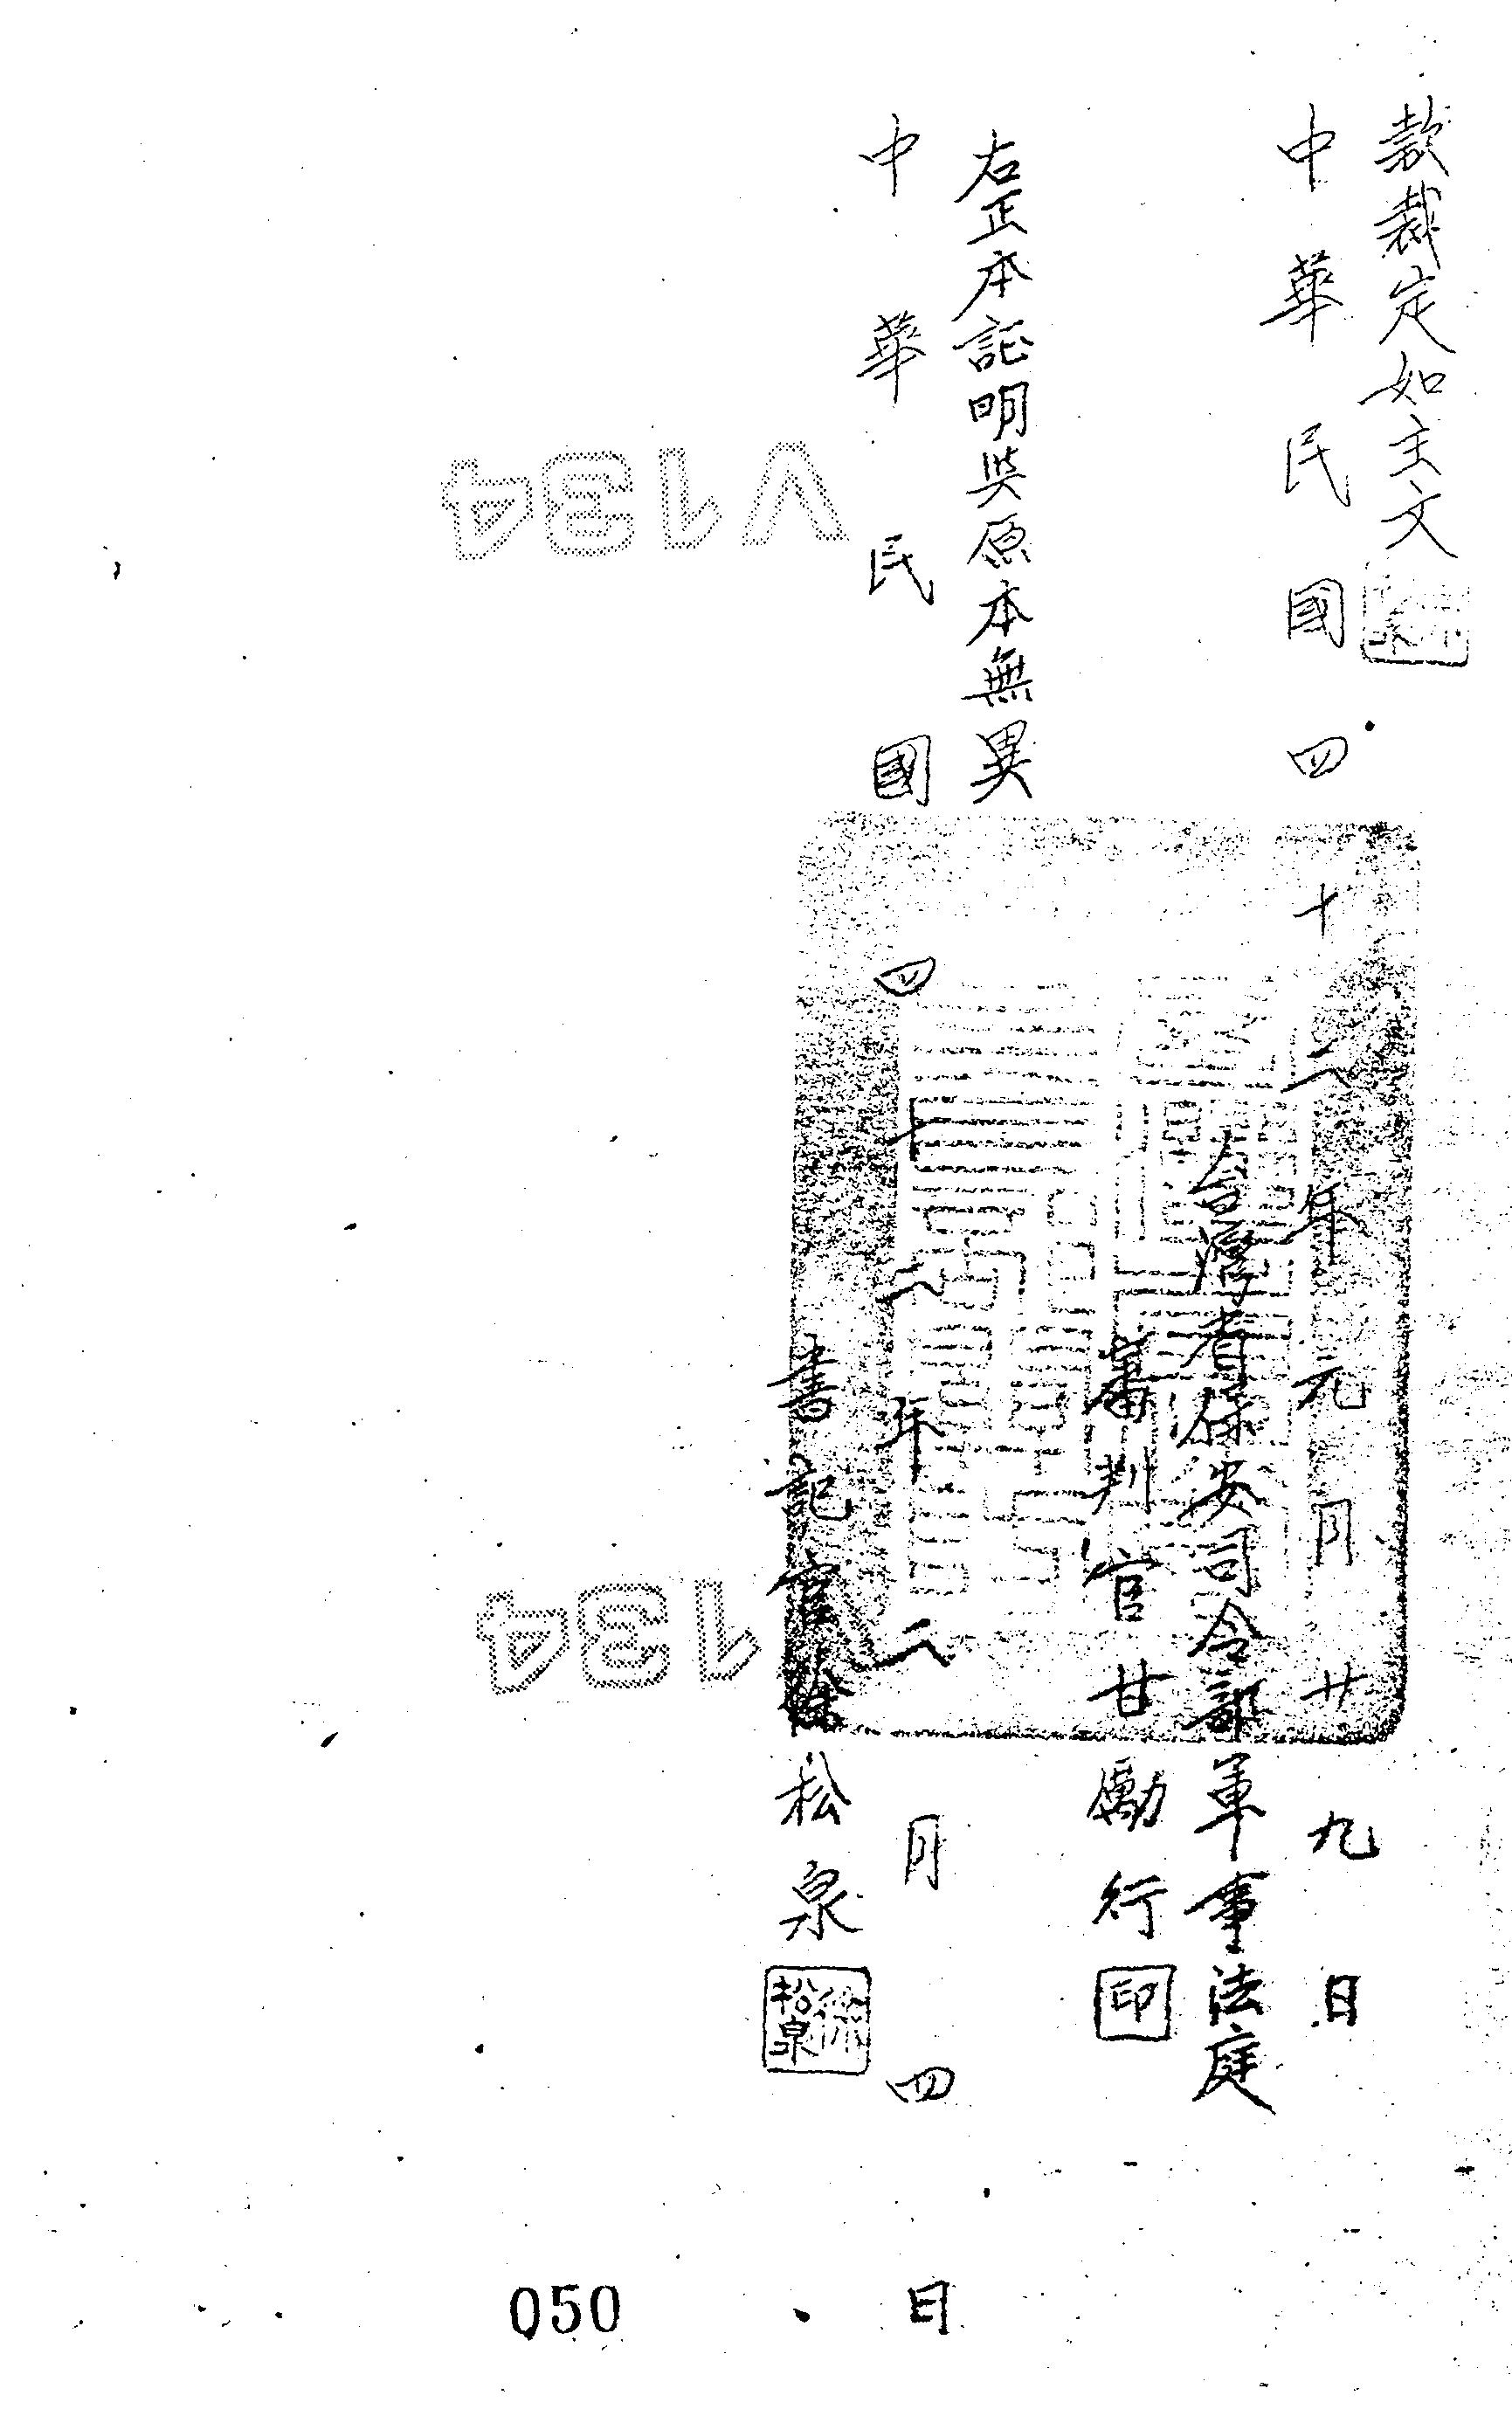 款裁定如主文
中華民國四十二年元月廿九日
台灣省保安司令部軍事法庭
審判官甘勵行
印
右正本証明與原本無異
中華民國四十二年二月四日
書記官徐松泉
徐松泉
V134
134
050